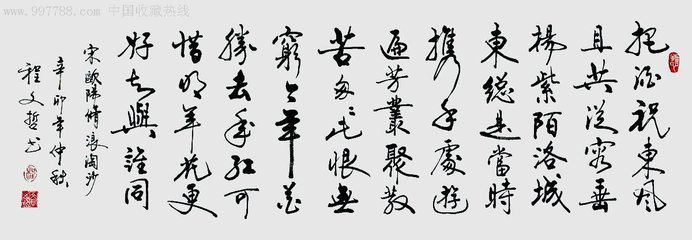 www.997788.com 中国收藏热线
把酒祝東风
且共從容垂
揚紫陌洛城
東總是當時
携手處遊
遍芳叢聚散
苦匆匆此恨無
窮今年花
勝去年红可
惜明年花更
好知與誰同
宋歐陽脩浪淘沙
辛卯年仲秋
程文哲书